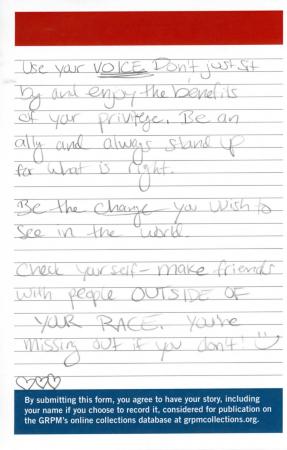 Use your VOICE. Don't just sit
by and enjoy the benefits
of your privilege. Be an
ally and always stand up
for what is right.
Be the change you wish to
see in the world.
Check yourself - make friends
with people OUTSIDE OF
YOUR RACE. You're
missing out if you don't!
By submitting this form, you agree to have your story, including
your name if you choose to record it, considered for publication on
the GRPM's online collections database at grpmcollections.org.